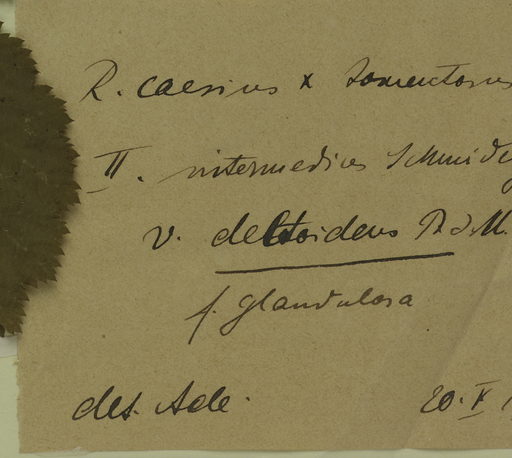 R. caesius x tomentosus
II. intermedius Schmidely
v. deltoideus P.J.M.
f. glandulosa
det. Ade.
20. V